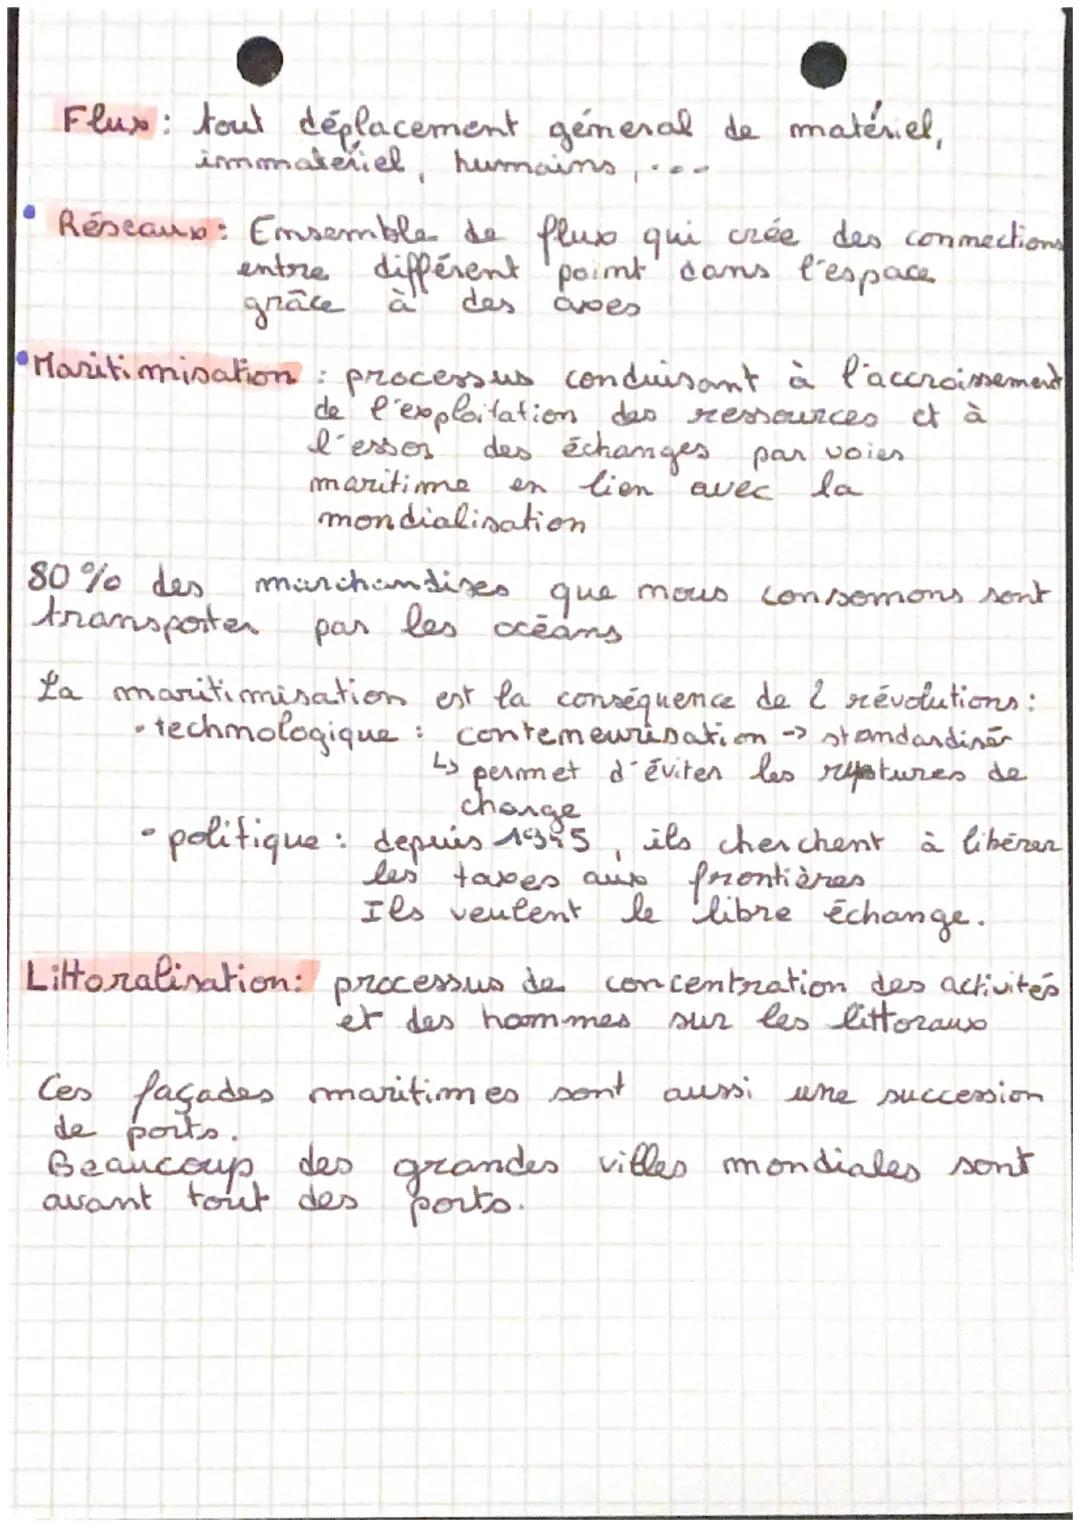 Flux : tout déplacement géneral de matériel,
immatériel, humains, ...
Réseaux : Ensemble de flux qui crée des connections
entre différent point dans l'espace
grâce à des axes
Maritimisation : processus conduisant à l'accroissement
de l'exploitation des ressources et à
l'essor des échanges par voies
maritime en lien avec la
mondialisation
80 % des marchandises que nous consomons sont
transporter par les océans
La maritimisation est la conséquence de 2 révolutions :
• technologique : conteneurisation -> standardisér
↳ permet d'éviter les ruptures de
charge
• politique : depuis 1945, ils cherchent à libérer
les taxes aux frontières
Ils veulent le libre échange.
Littoralisation : processus de concentration des activités
et des hommes sur les littoraux
Ces façades maritimes sont aussi une succession
de ports.
Beaucoup des grandes villes mondiales sont
avant tout des ports.